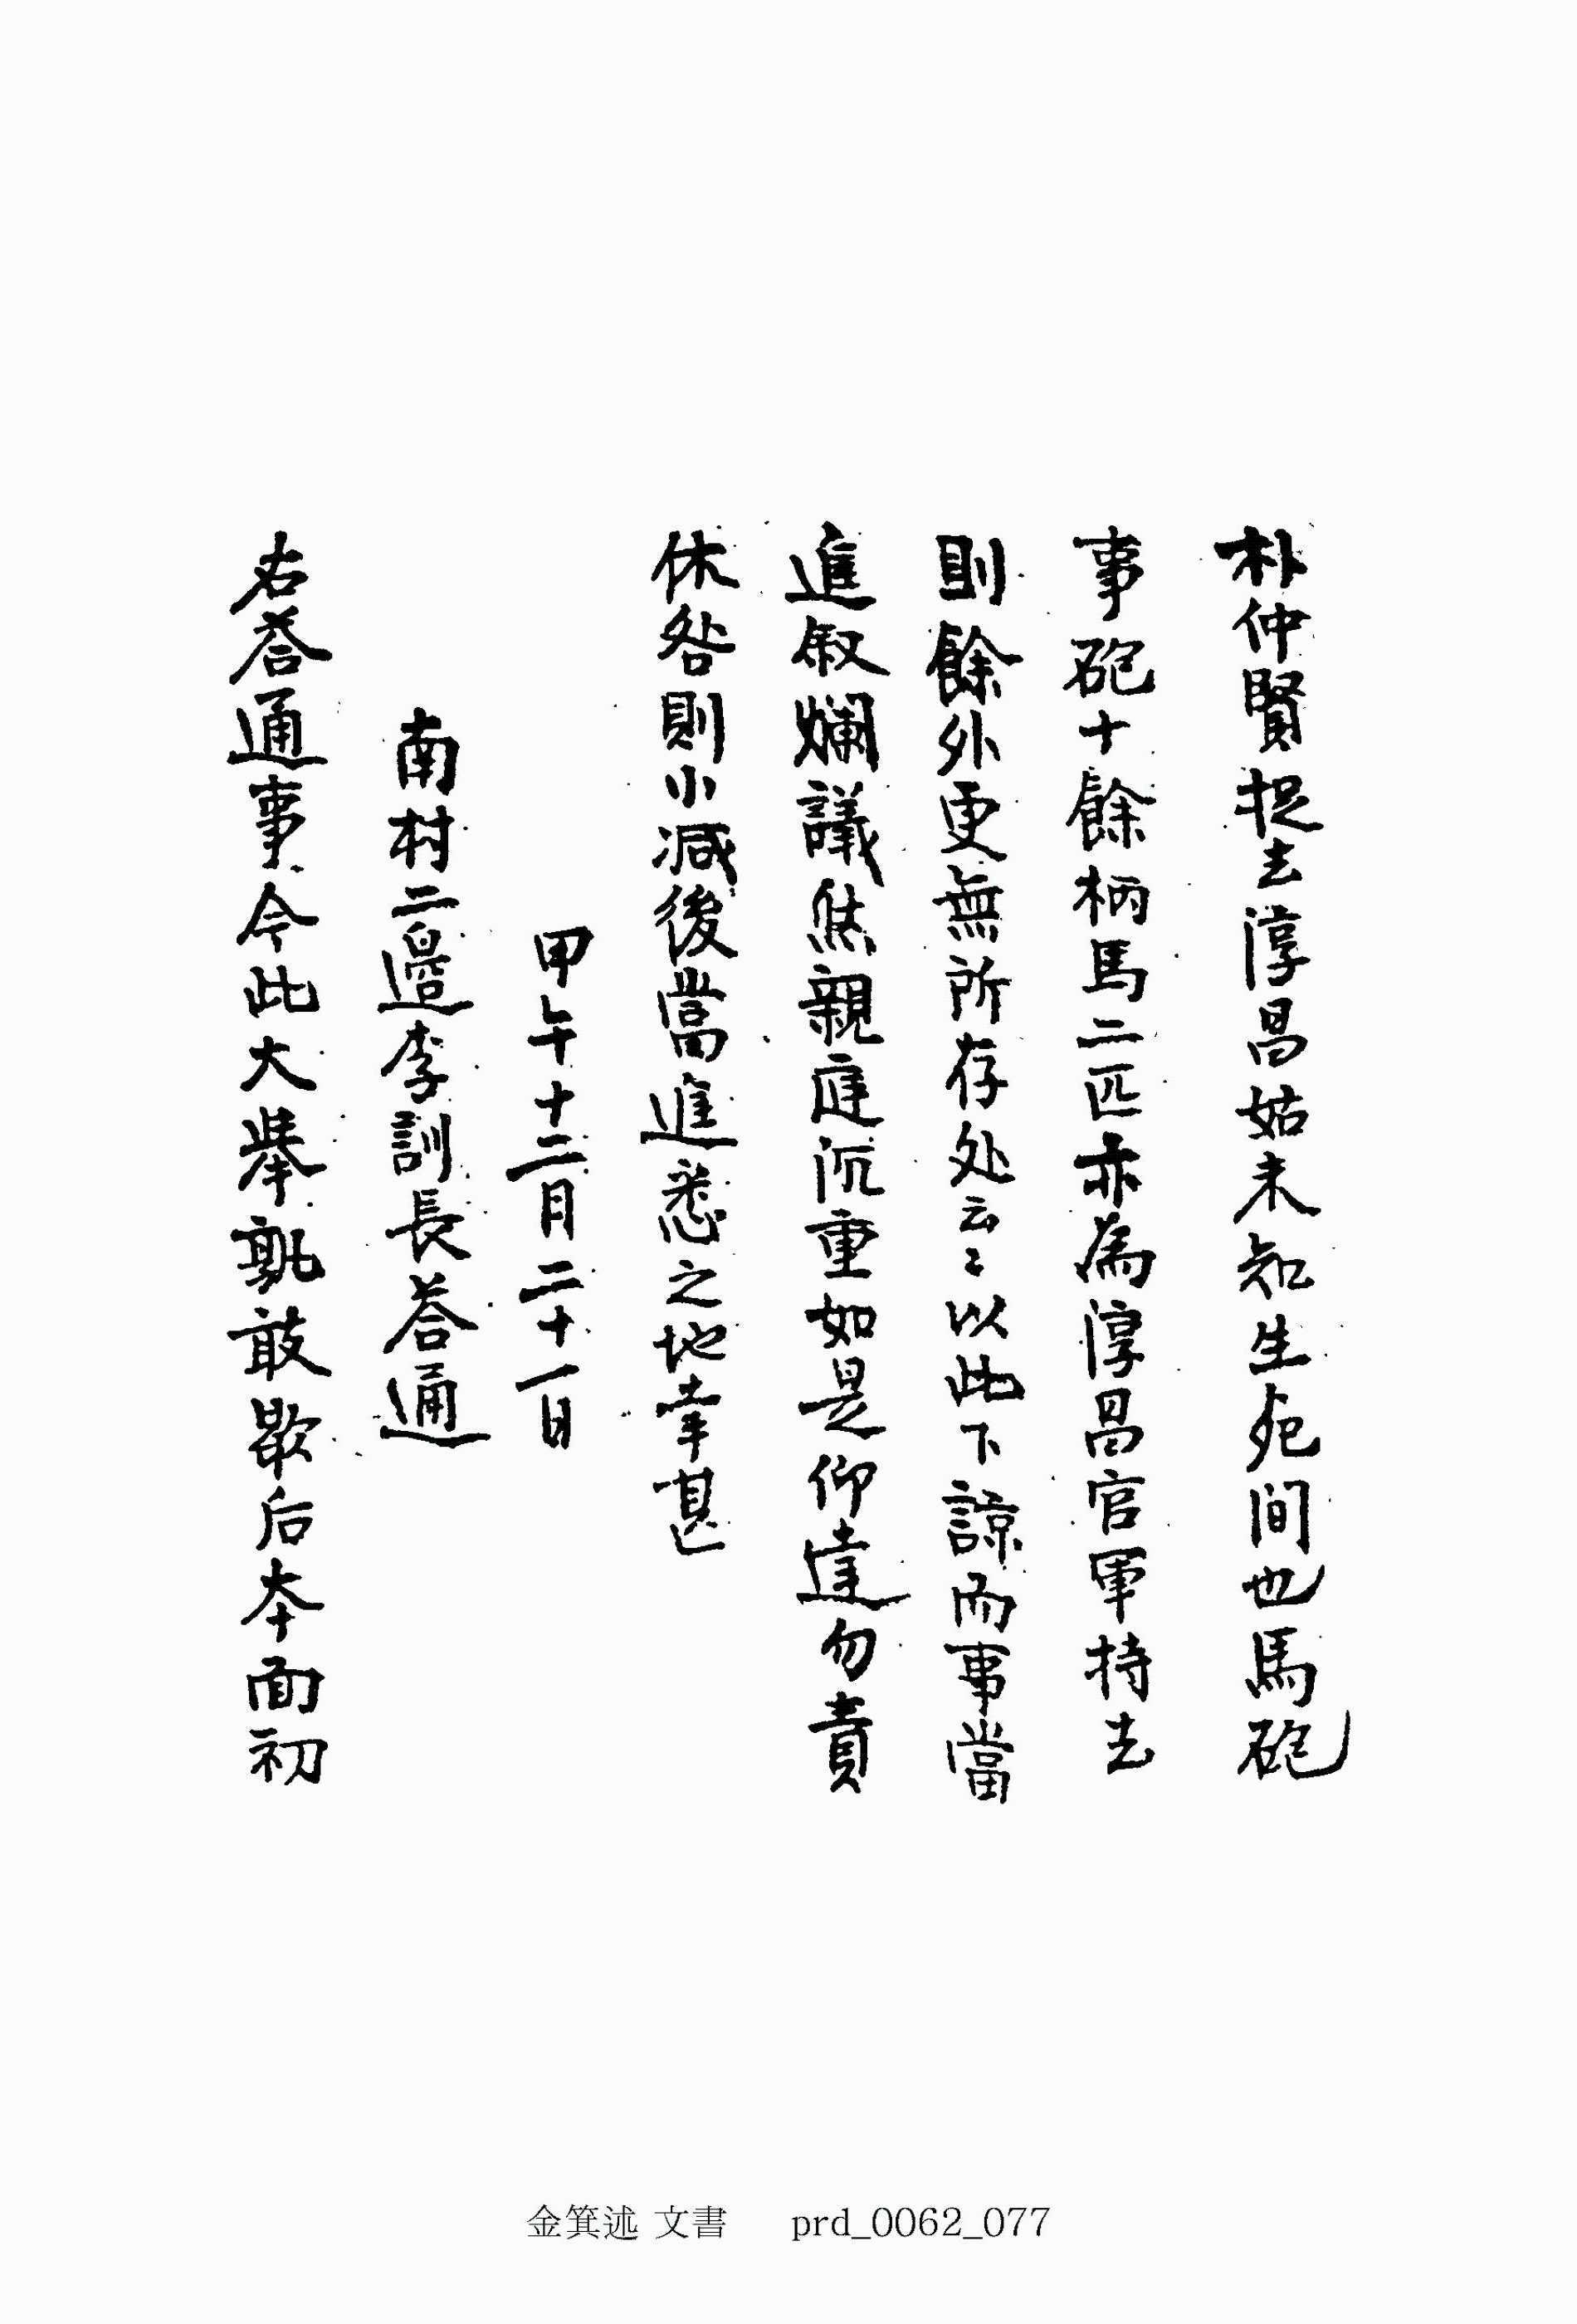 朴仲賢捉去淳昌姑未知生死间也馬砲
事砲十餘柄馬二匹亦為淳昌官軍持去
則餘外更無所存处云〻以此下諒而事當
進叙爛議然親庭沉重如是仰達勿責
休咎則小减後當進悉之地幸甚
甲午十二月二十一日
南村二邊李訓長荅通
右荅通事今此大擧孰敢歇后本面初
金箕述 文書 prd_0062_077